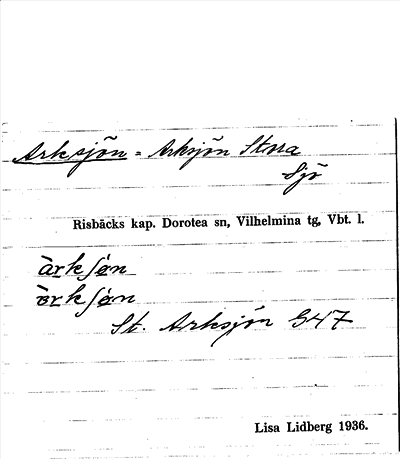 Arksjön = Arksjön Stora
Sjö
Risbäcks kap. Dorotea sn, Vilhelmina tg, Vbt. l.
àrkʃøn
St. Arksjön G47
Lisa Lidberg 1936.